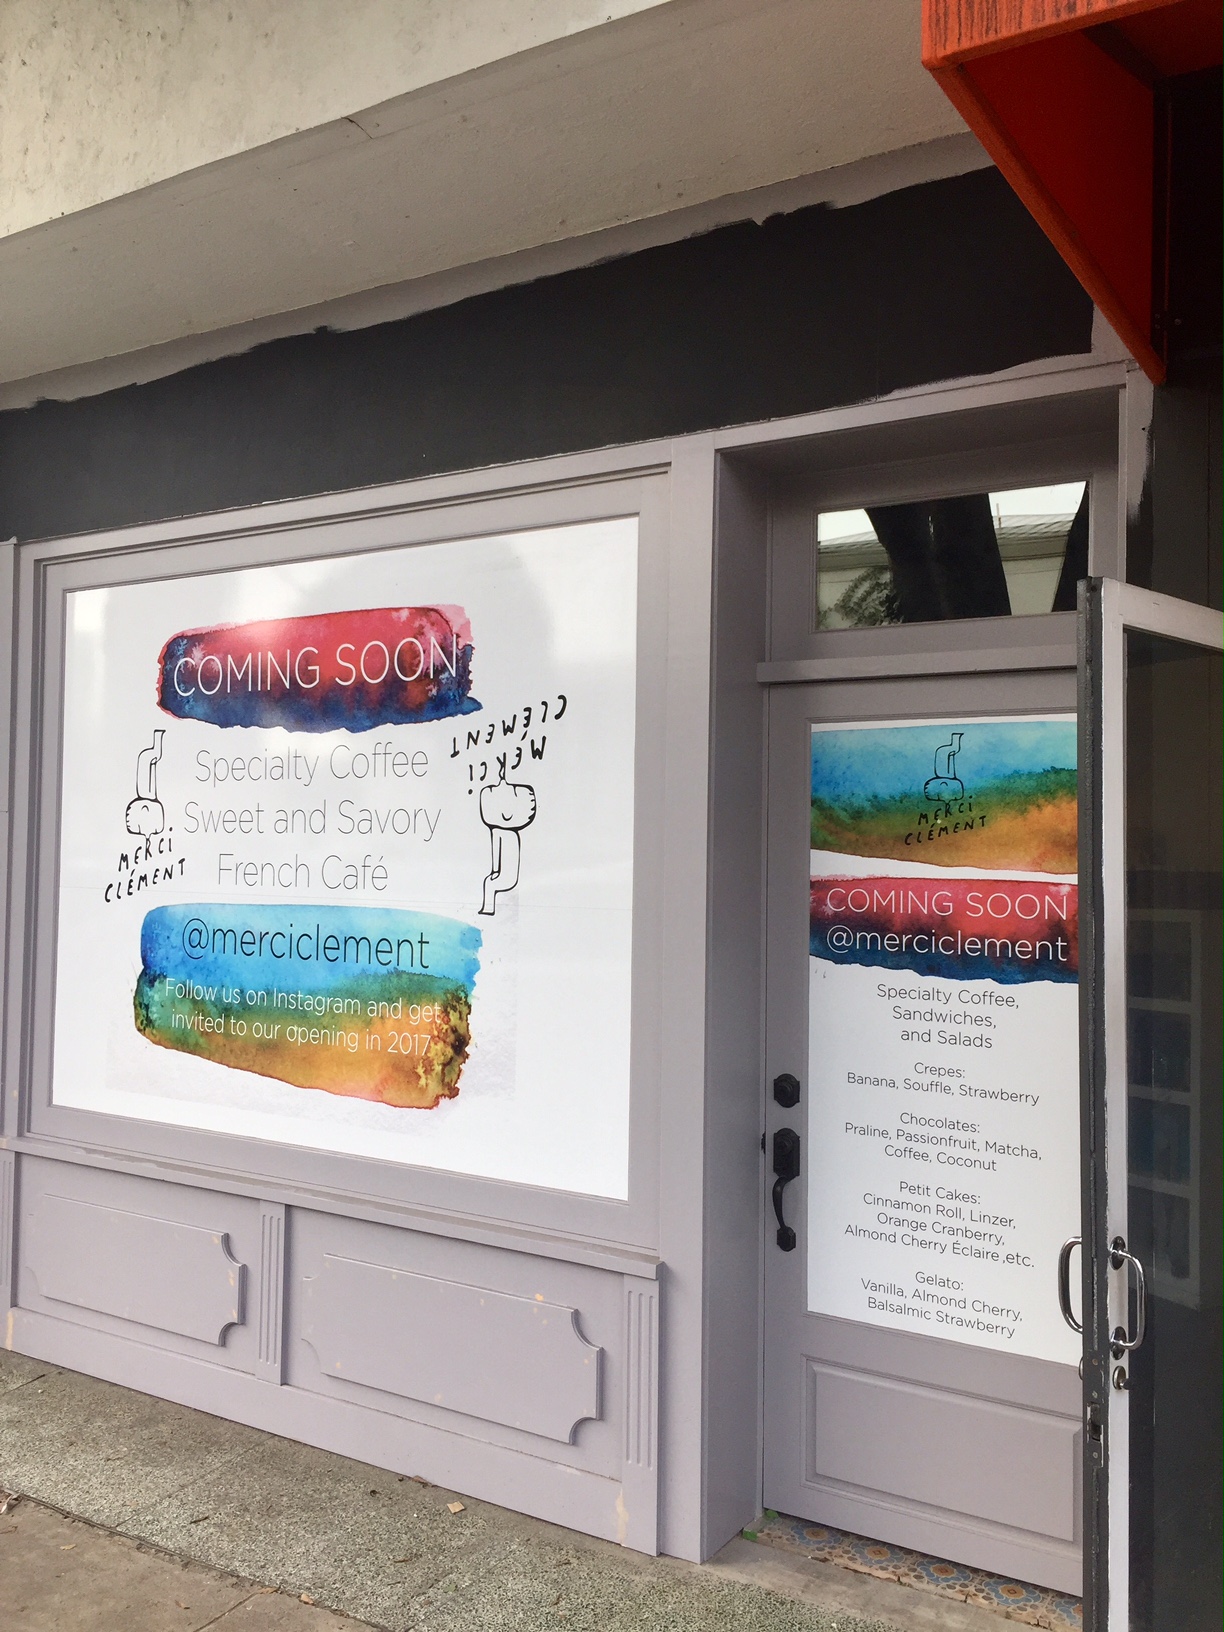 COMING SOON
Specialty Coffee
Sweet and Savory
French Café
MERCi
CLÉMENT
MERCi
CLÉMENT
@merciclement
Follow us on Instagram and get
invited to our opening in 2017
MERCi
CLÉMENT
COMING SOON
@merciclement
Specialty Coffee,
Sandwiches,
and Salads
Crepes:
Banana, Souffle, Strawberry
Chocolates:
Praline, Passionfruit, Matcha,
Coffee, Coconut
Petit Cakes:
Cinnamon Roll, Linzer,
Orange Cranberry,
Almond Cherry Éclaire ,etc.
Gelato:
Vanilla, Almond Cherry,
Balsalmic Strawberry